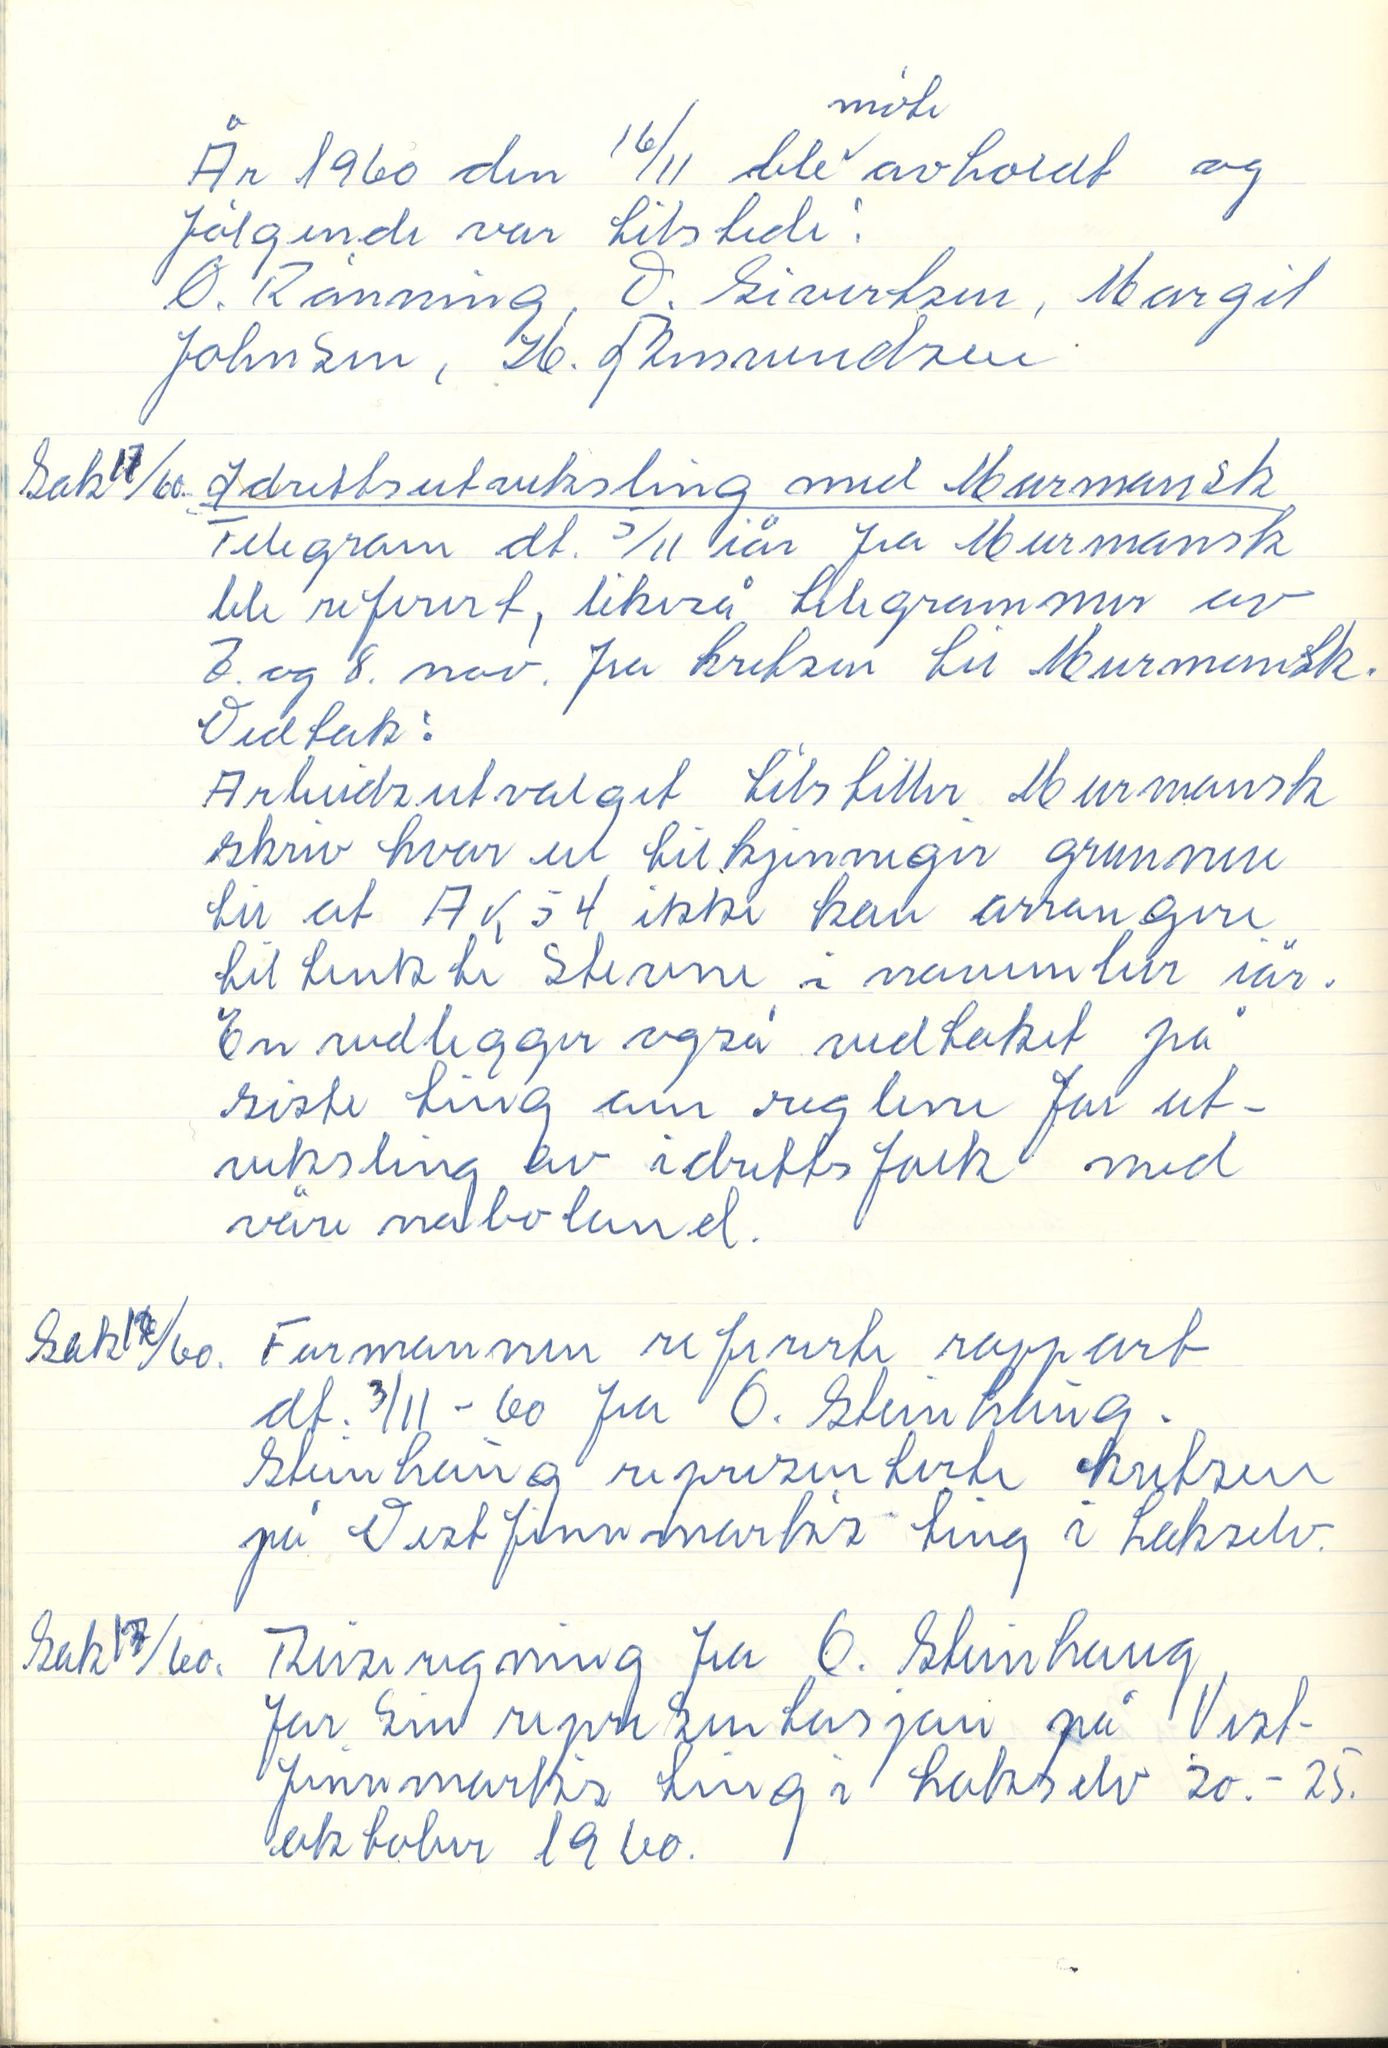 År 1960 den 16/11 ble møte avholdt og
følgende var tilstede:
O. Rønning, O. Sivertsen, Margit
Johnsen, H. Amundsen
Sak /60. Idrettsutveksling med Murmansk
Telegram dt. 5/11 iår fra Murmansk
ble referert, likeså telegrammer av
7. og 8. nov. fra kretsen til Murmansk.
Vedtak:
Arbeidsutvalget tilstiller Murmansk
skriv hvor en tilkjennegir grunnene
til at AK 54 ikke kan arrangere
tiltenkte stevne i november iår.
En vedlegger også vedtaket på
siste ting om reglene for ut-
veksling av idrettsfolk med
våre naboland.
Sak /60. Formannen refererte rapport
dt. 3/11-60 fra O. Steinhaug.
Steinhaug representerte kretsen
på Vestfinnmarks ting i Lakselv.
Sak /60. Reiseregning fra O. Steinhaug
for sin representasjon på Vest-
finnmarks ting i Lakselv 20.-25.
oktober 1960.